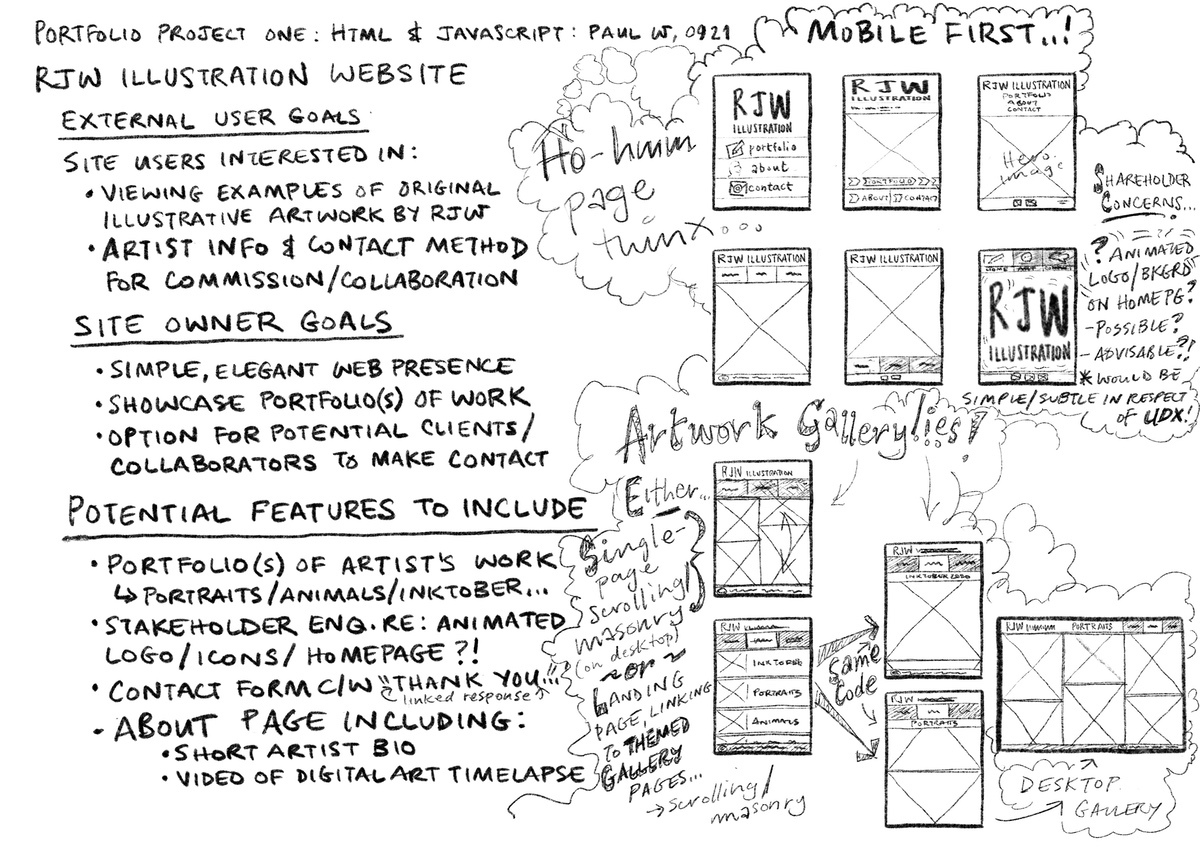 PORTFOLIO PROJECT ONE: HTML & JAVASCRIPT: PAUL W, 0921
RJW ILLUSTRATION WEBSITE
EXTERNAL USER GOALS
SITE USERS INTERESTED IN:
• VIEWING EXAMPLES OF ORIGINAL
ILLUSTRATIVE ARTWORK BY RJW
• ARTIST INFO & CONTACT METHOD
FOR COMMISSION/COLLABORATION
SITE OWNER GOALS
• SIMPLE, ELEGANT WEB PRESENCE
• SHOWCASE PORTFOLIO(S) OF WORK
• OPTION FOR POTENTIAL CLIENTS/
COLLABORATORS TO MAKE CONTACT
POTENTIAL FEATURES TO INCLUDE
• PORTFOLIO(S) OF ARTIST'S WORK
↳ PORTRAITS/ANIMALS/INKTOBER...
• STAKEHOLDER ENQ. RE: ANIMATED
LOGO/ICONS/HOMEPAGE?!
• CONTACT FORM C/W "THANK YOU..."
(linked response)
• ABOUT PAGE INCLUDING:
• SHORT ARTIST BIO
• VIDEO OF DIGITAL ART TIMELAPSE
MOBILE FIRST...!
Ho-hmm
page
thinx...
RJW
ILLUSTRATION
portfolio
about
contact
RJW
ILLUSTRATION
PORTFOLIO
ABOUT
CONTACT
RJW ILLUSTRATION
PORTFOLIO
ABOUT
CONTACT
Hero
image
SHAREHOLDER
CONCERNS...
RJW ILLUSTRATION
RJW ILLUSTRATION
RJW
ILLUSTRATION
? ANIMATED
LOGO/BKGRD
ON HOMEPG?
- POSSIBLE?
- ADVISABLE?!
* WOULD BE
SIMPLE/SUBTLE IN RESPECT
OF UDX!
Artwork Gallery/ies!
Either...
Single-
page
scrolling/
masonry
(on desktop)
~or~
LANDING
PAGE, LINKING
TO THEMED
GALLERY
PAGES...
→ scrolling/
masonry
RJW ILLUSTRATION
RJW
INKTOBER
PORTRAITS
ANIMALS
Same
Code
RJW
INKTOBER 2020
PORTRAITS
RJW
PORTRAITS
DESKTOP
GALLERY